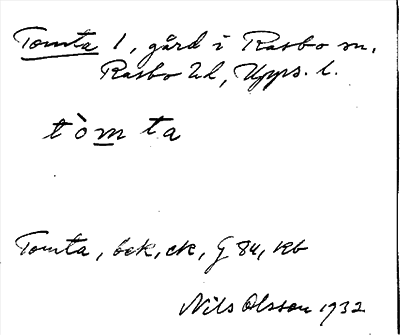 Tomta 1, gård i Rasbo sn,
Rasbo hd, Upps. l.
tòm ta
Tomta, bek, ek, G 84, Kb
Nils Olsson 1932